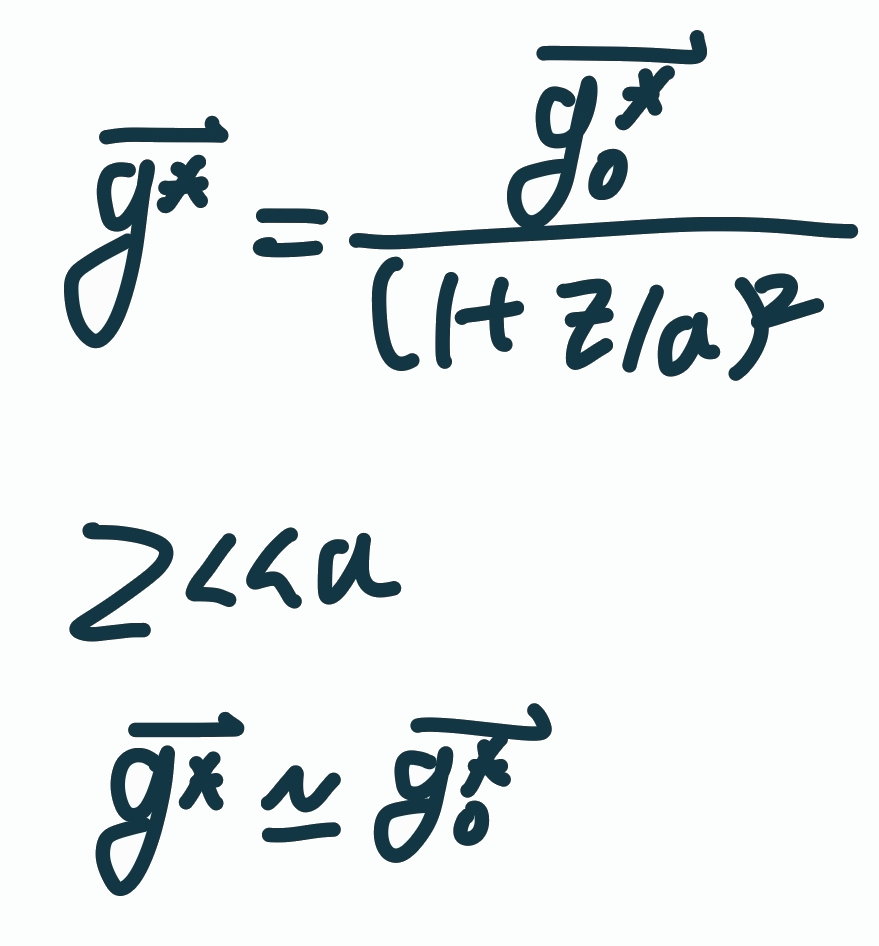 $\overrightarrow{g^*} = \frac{\overrightarrow{g_0^*}}{(1+z/a)^2}$
$z << a$
$\overrightarrow{g^*} \simeq \overrightarrow{g_0^*}$